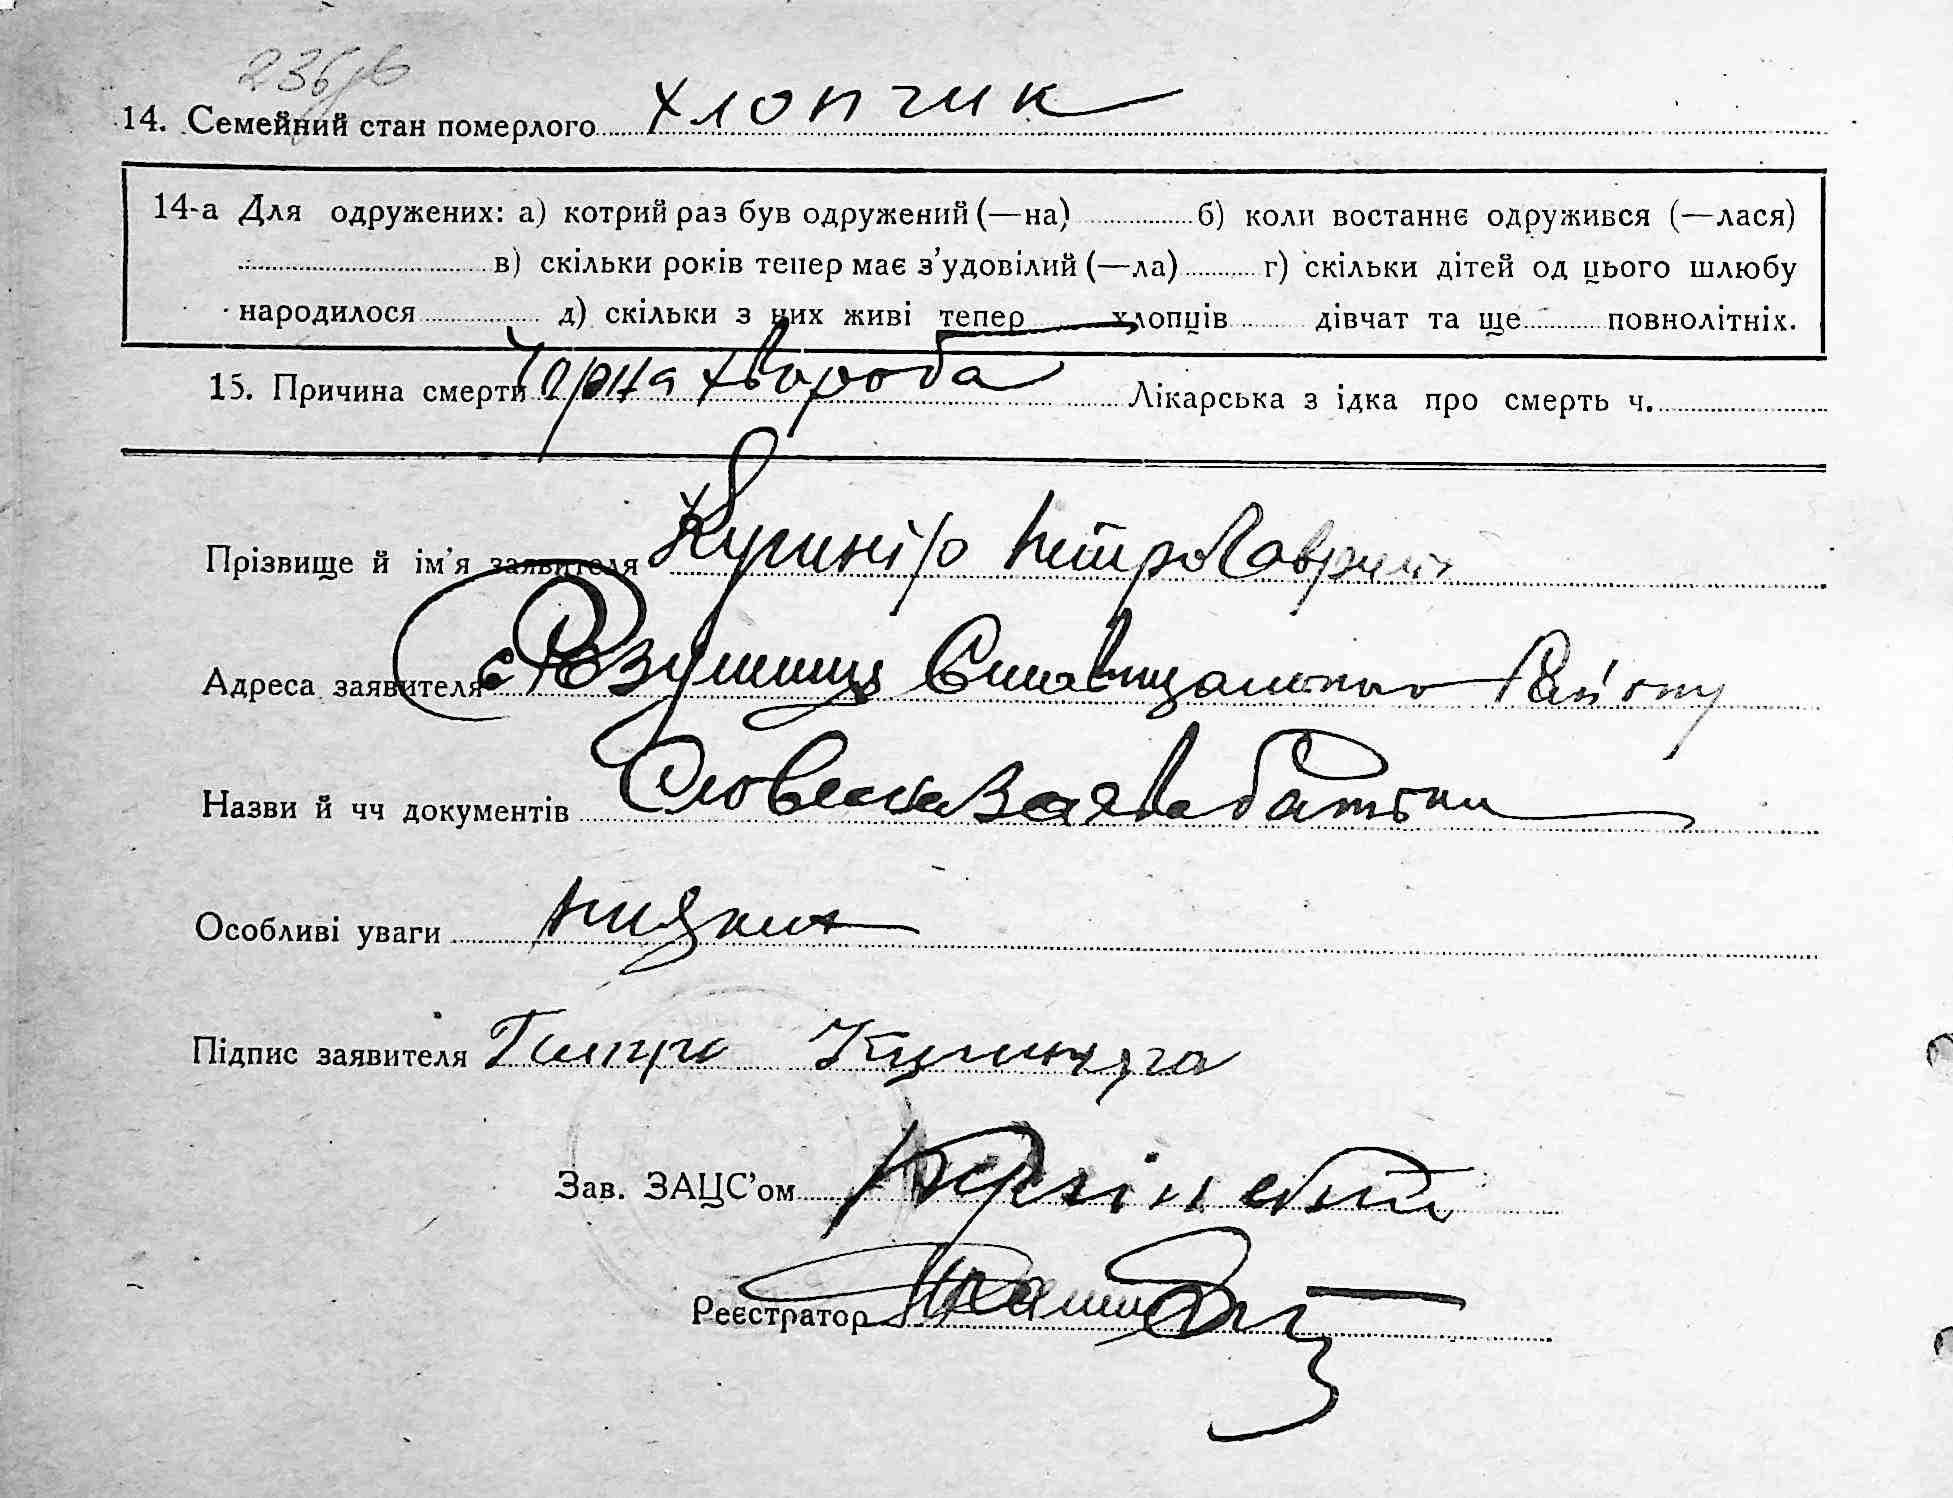 14. Семейний стан померлого хлопчик
14-а Для одружених: а) котрий раз був одружений (—на) б) коли востаннє одружився (—лася)
в) скільки років тепер має з’удовілий (—ла) г) скільки дітей од цього шлюбу
народилося д) скільки з них живі тепер хлопців дівчат та ще повнолітніх.
15. Причина смерти Чорна хвороба Лікарська з ідка про смерть ч.
Прізвище й ім’я заявителя Петро
Адреса заявителя с Розумниця Району
Назви й чч документів Словесна заява батька
Особливі уваги
Підпис заявителя Петро
Зав. ЗАЦС’ом
Реєстратор